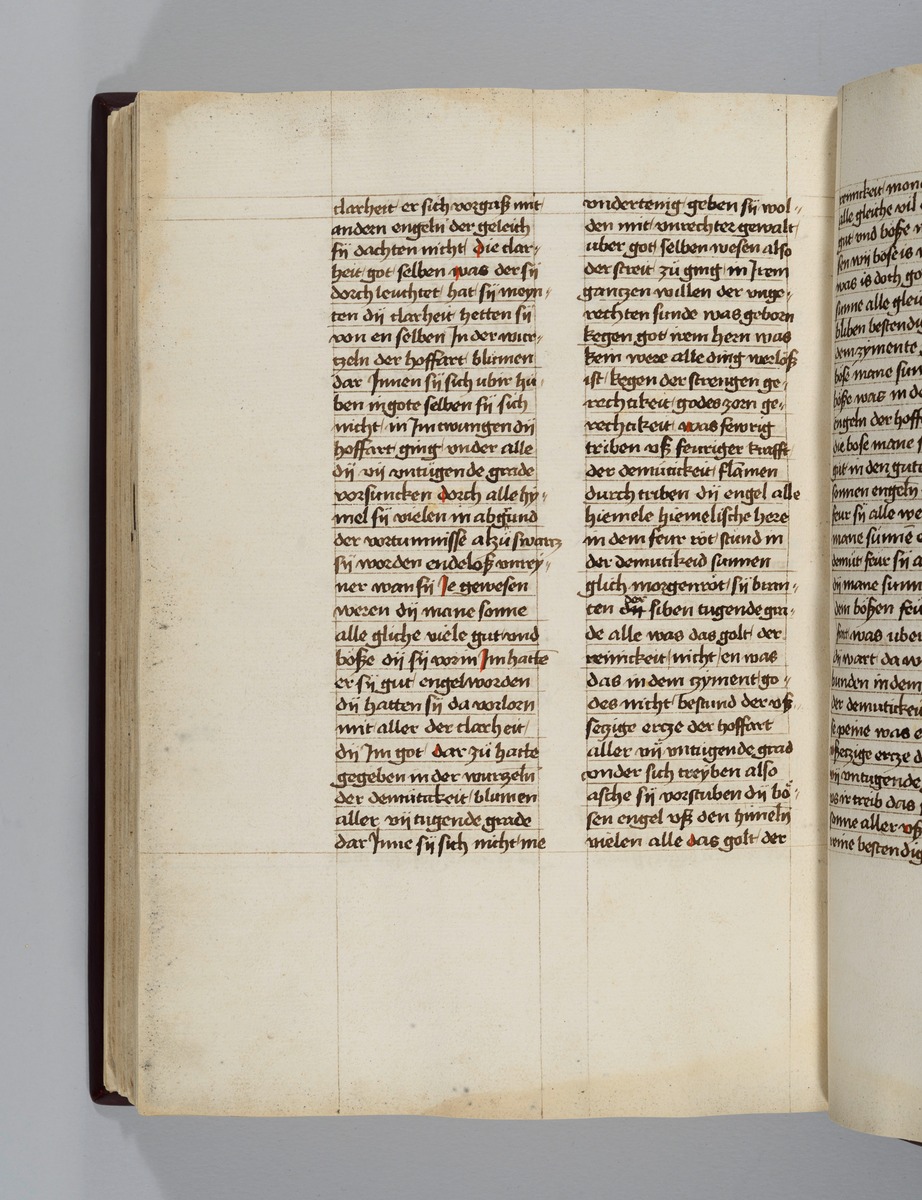 clarheit er sich vorgaß mit
andern engeln der geleich
sij dachten nicht die clar-
heit got selben was der sij
dorch leuchtet hat sij meyn-
ten dij clarheit hetten sij
von en selben In der wur-
tzeln der hoffart blumen
dar Innen sij sich ubir hu-
ben in gote selben sij sich
nicht in Im twungen dij
hoffart ging under alle
dij vij untugende grade
vorsuncken dorch alle hy-
mel sij vielen in abgrund
der vortumnisse alzu swartz
sij worden endeloß unrey-
ner wan sij Je gewesen
weren dij mane sonne
alle gliche viele gut und
böße dij sij vorm Im hatte
er sij gut engel worden
dij hatten sij da vorlorn
mit aller der clarheit
dij Im got dar zu hatte
gegeben in der wurzeln
der demutickeit blumen
aller vij tugende grade
dar Inne sij sich nicht me
undertenig geben sij wol-
den mit unrechter gewalt
uber got selben wesen also
der streit zu ging in Irem
gantzen willen der unge-
rechten sunde was geborn
kegen got irem hern was
kem were alle ding verloß
ist kegen der strengen ge-
rechtikeit godes zorn ge-
rechtikeit was fewrig
triben uß feuriger krafft
der demutickeit flamen
durch triben dij engel alle
hiemele hiemelische here
in dem feur rot stund in
der demutikeid sunnen
glich morgenrot sij bran-
ten dij der siben tugende gra-
de alle was das golt der
reinickeit nicht en was
das in dem zyment go-
des nicht bestund der uß-
setzige ertze der hoffart
aller vij untugende grad
under sich treyben also
asche sij vorstuben dij bö-
sen engel uß den himeln
vielen alle das golt der
reinickeit
alle gleiche vil
gut und böße
sen wij bose is
was is doch
sunne alle
bliben bestendig
dem zymente
böse mane
böße was in
engeln der
die bose mane
gut in den
sonnen engeln
feur sij alle
mane sunne
demut feur sij
dij mane
dem bößen
was
dij wart da
in dem
der demutickeit
peine was
ertze
untugende
treib das
sonne aller
reine bestendig